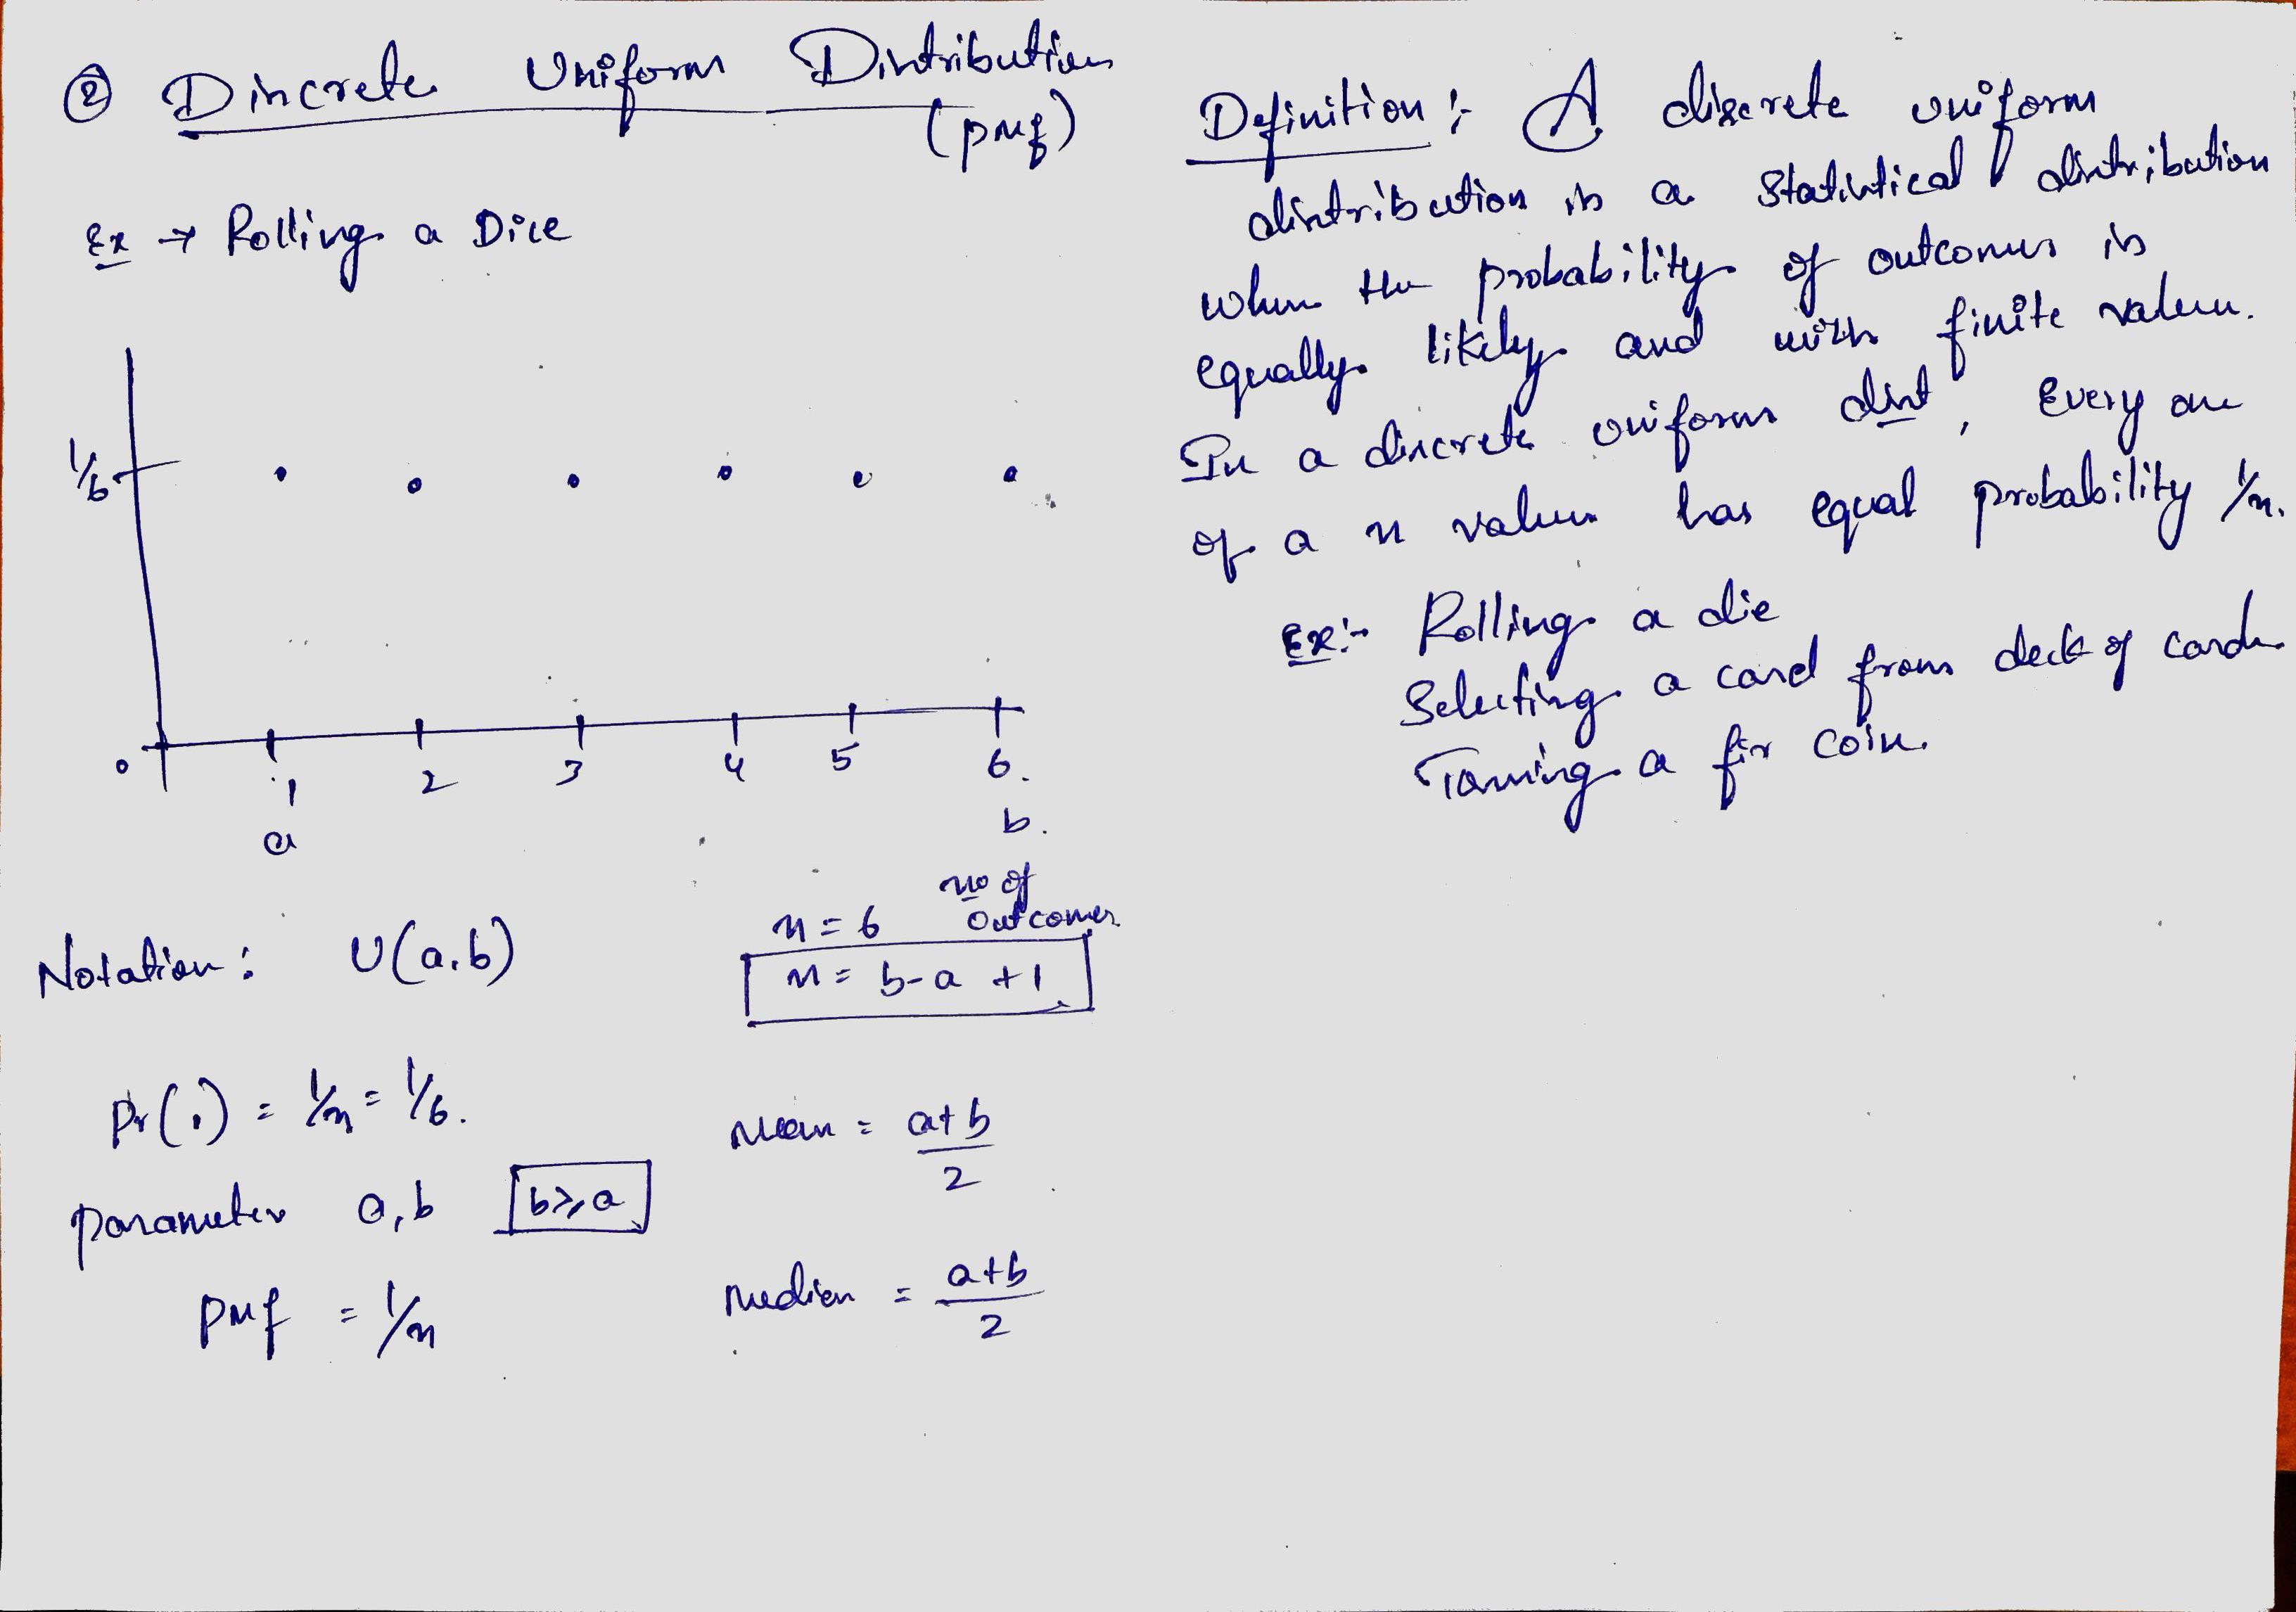 ② Discrete Uniform Distribution
(pmf)
Ex → Rolling a Dice
1/6
0 1 2 3 4 5 6.
a b.
n = 6 no of
outcomes
Notation : U(a,b)
n = b-a +1
Pr(1) = 1/n = 1/6.
mean = a+b
2
parameter a,b b≥a
median = a+b
2
pmf = 1/n
Definition :- A discrete uniform
distribution is a statistical distribution
when the probability of outcomes is
equally likely and with finite values.
In a discrete uniform dist, Every one
of a n values has equal probability 1/n.
Ex:- Rolling a die
Selecting a card from deck of cards
Tossing a fir coin.